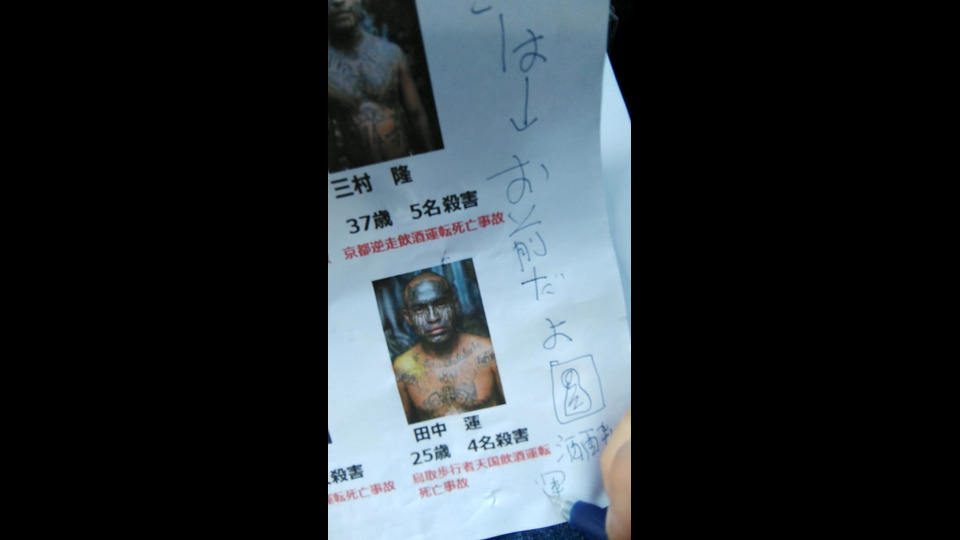 三村 隆
37歳 5名殺害
京都逆走飲酒運転死亡事故
田中 蓮
25歳 4名殺害
鳥取歩行者天国飲酒運転
死亡事故
殺害
転死亡事故
は→お前だよ
酒
運